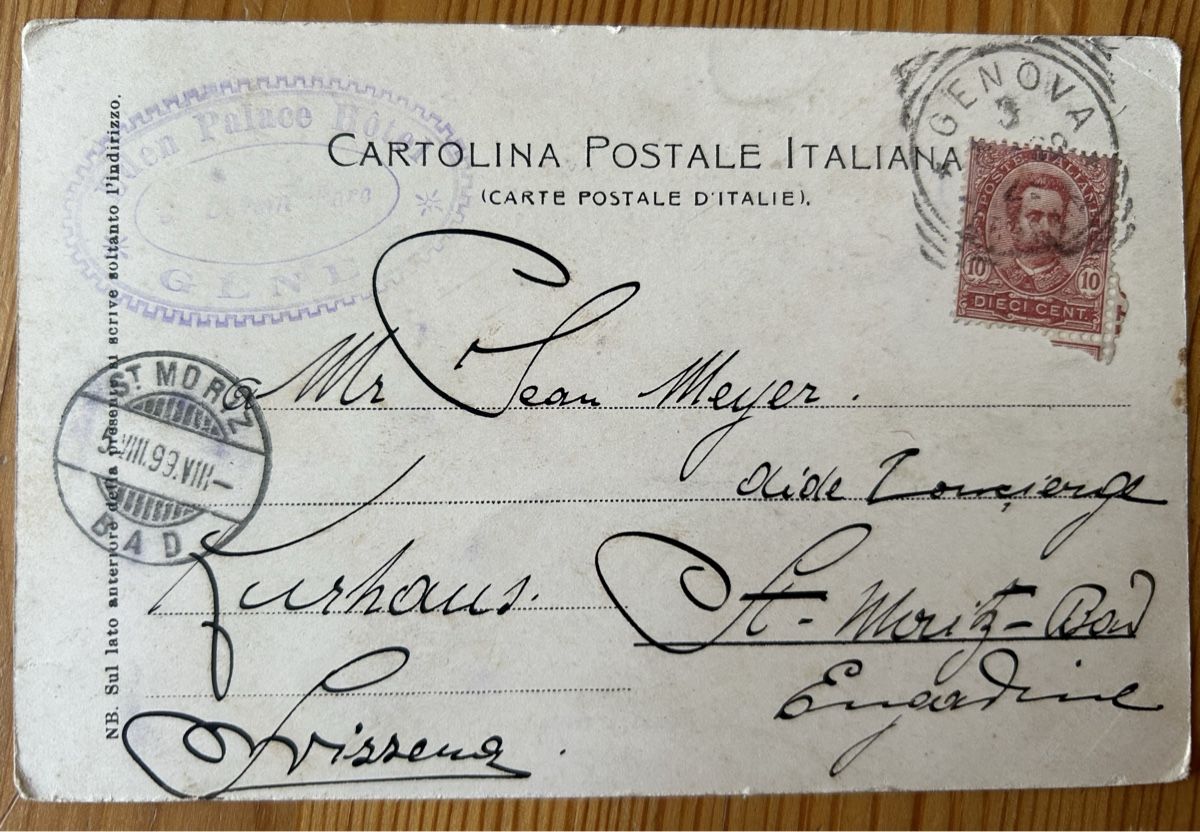 NB. Sul lato anteriore della presente si scrive soltanto l'indirizzo.
Eden Palace Hôtel
GÊNES
CARTOLINA POSTALE ITALIANA
(CARTE POSTALE D'ITALIE).
GENOVA
3
POSTE ITALIANE
10 10
DIECI CENT.
a Mr Jean Meyer.
aide Concierge
Kurhaus.
St-Moritz-Bad
Engadine
Svizzera.
ST MORITZ
5.VIII.99.VIII-
BAD